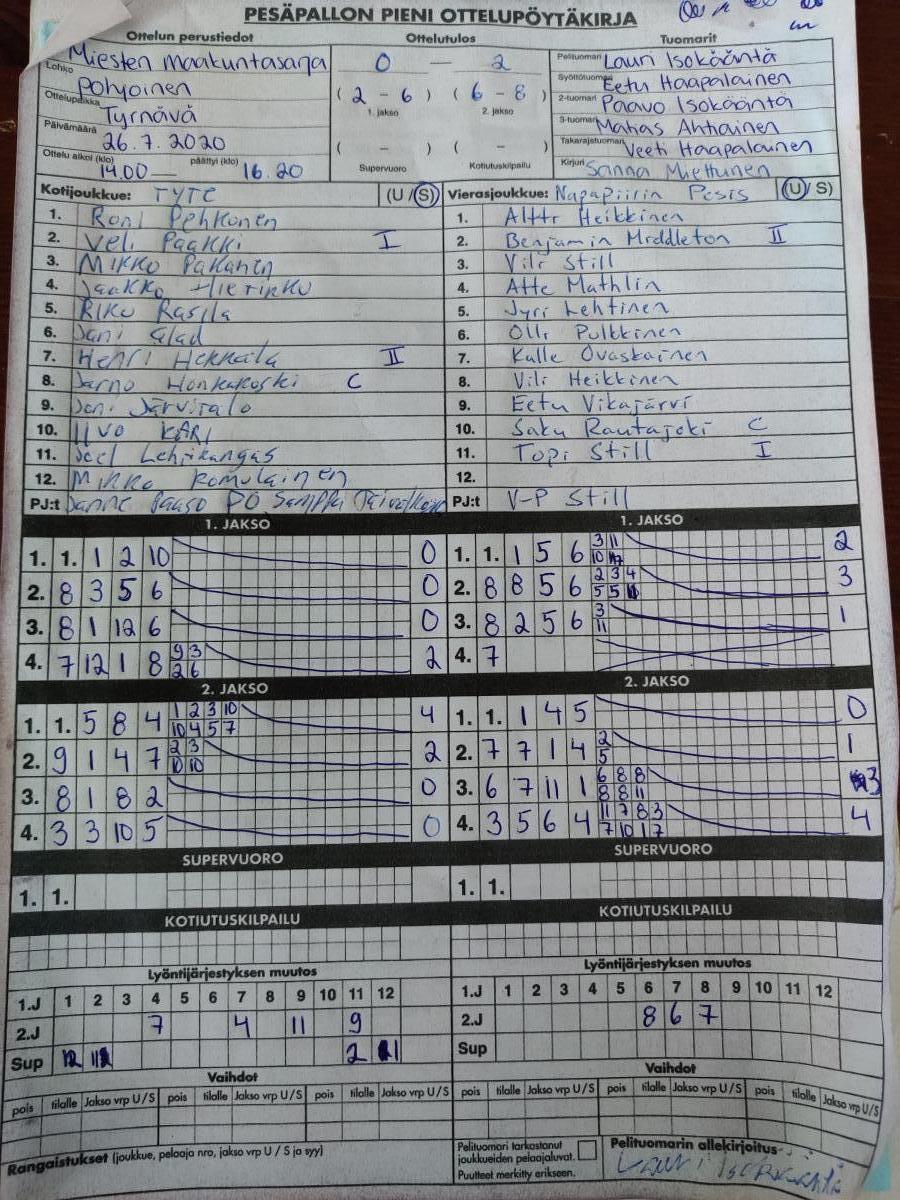 PESÄPALLON PIENI OTTELUPÖYTÄKIRJA
Ottelun perustiedot Ottelutulos Tuomarit
Lohko Miesten maakuntasarja Pohjoinen
Ottelupaikka Tyrnävä
Päivämäärä 26.7.2020
Ottelu alkoi (klo) 14.00 — päättyi (klo) 16.20
0 — 2
( 2 - 6 ) ( 6 - 8 )
1. jakso 2. jakso
( - ) ( - )
Supervuoro Kotiutuskilpailu
Pelituomari Lauri Isokääntä
Syöttötuomari Eetu Haapalainen
2-tuomari Paavo Isokääntä
3-tuomari Ahtiainen
Takarajatuomari Veeti Haapalainen
Kirjuri Sanna Miettunen
Kotijoukkue: TYTE (U / S)
1. Roni Pehkonen
2. Veli Paakki I
3. Mikko Pakanen
4. Jaakko
5. Riko Rasila
6. Jani
7. Henri Heikkilä II
8. Jarno Honkakoski C
9. Joni Järvitalo
10. IIVO KARI
11. Joel Lehikangas
12. Mikko Komulainen
PJ:t Janne Paaso PÖ
Vierasjoukkue: Napapiirin Pesis (U / S)
1. Altti Heikkinen
2. Benjamin Middleton II
3. Vili Still
4. Atte Mathlin
5. Jyri Lehtinen
6. Olli Pulkkinen
7. Kalle Ovaskainen
8. Vili Heikkinen
9. Eetu Vikajärvi
10. Saku Rautajoki C
11. Topi Still I
12.
PJ:t V-P Still
1. JAKSO 1. JAKSO
1. 1. 1 2 10 0
2. 8 3 5 6 0
3. 8 1 12 6 0
4. 7 12 1 8 9 3 2 6 2
1. 1. 1 5 6 3 11 10 2
2. 8 8 5 6 2 3 4 5 5 3
3. 8 2 5 6 3 11 1
4. 7
2. JAKSO 2. JAKSO
1. 1. 5 8 4 1 2 3 10 10 4 5 7 4
2. 9 1 4 7 2 3 10 10 2
3. 8 1 8 2 0
4. 3 3 10 5 0
1. 1. 1 4 5 0
2. 7 7 1 4 2 5 1
3. 6 7 11 1 6 8 8 8 8 11 3
4. 3 5 6 4 11 7 8 3 7 10 1 7 4
SUPERVUORO SUPERVUORO
1. 1. 1. 1.
KOTIUTUSKILPAILU KOTIUTUSKILPAILU
Lyöntijärjestyksen muutos Lyöntijärjestyksen muutos
1.J 1 2 3 4 5 6 7 8 9 10 11 12
2.J 7 4 11 9
Sup 12 2
1.J 1 2 3 4 5 6 7 8 9 10 11 12
2.J 8 6 7
Sup
Vaihdot Vaihdot
pois tilalle Jakso vrp U / S pois tilalle Jakso vrp U / S pois tilalle Jakso vrp U / S
pois tilalle Jakso vrp U / S pois tilalle Jakso vrp U / S pois tilalle Jakso vrp U / S
Rangaistukset (joukkue, pelaaja nro, jakso vrp U / S ja syy)
Pelituomari tarkastanut
joukkueiden pelaajaluvat.
Puutteet merkitty erikseen.
Pelituomarin allekirjoitus
Lauri Isokääntä